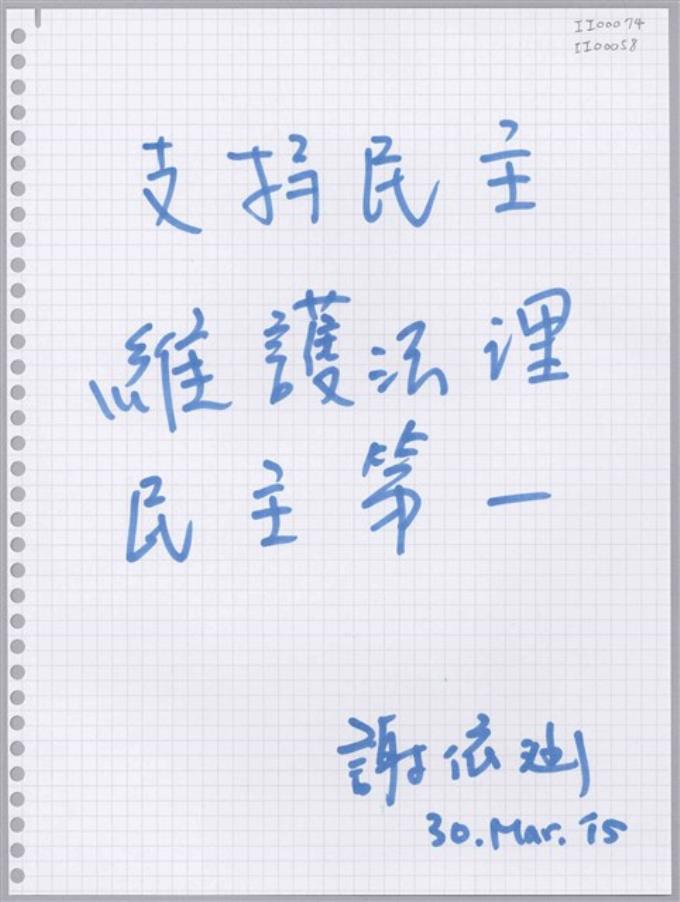 II00074
II00058
支持民主
維護法理
民主第一
謝依
30.Mar. 15